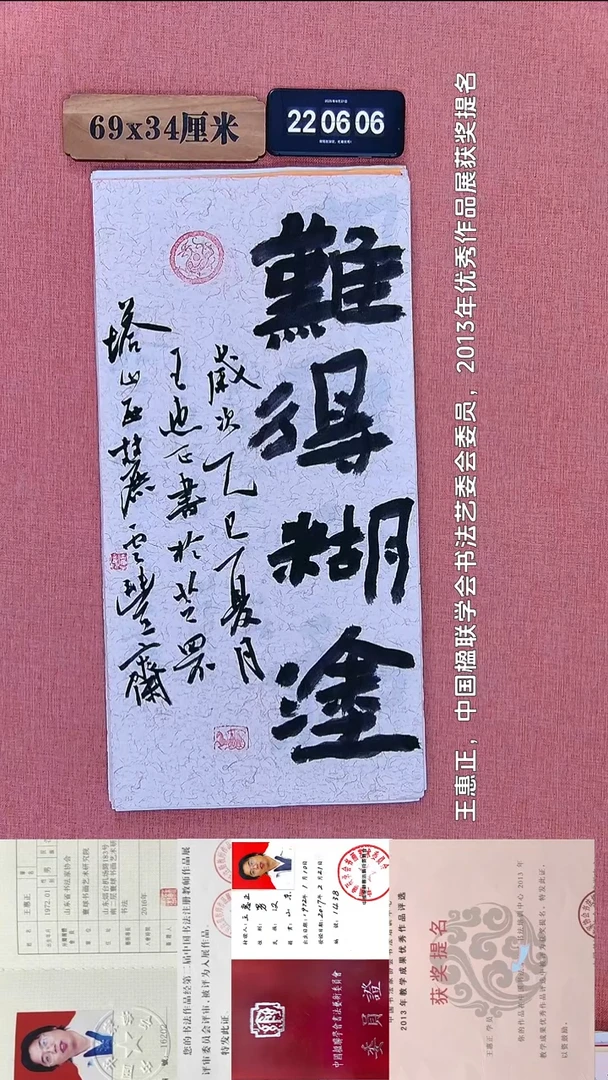 69x34厘米
22 06 06
難得糊塗
歲次乙巳夏月
王惠正書於芝罘
塔山西麓雲豐齋
王惠正，中国楹联学会书法艺委会委员，2013年优秀作品展获奖提名
王惠正
1972.01
男
山东省书法家协会
2016年
您的书法作品经第二届中国书法注册教师作品展
评审委员会评审，被评为入展作品。
特发此证
中国楹聯學會書法藝術委員會
委員證
2013年教学成果优秀作品评选
获奖提名
王惠正 学员
教学成果优秀作品评选中获奖提名，特发此证，
以资鼓励。